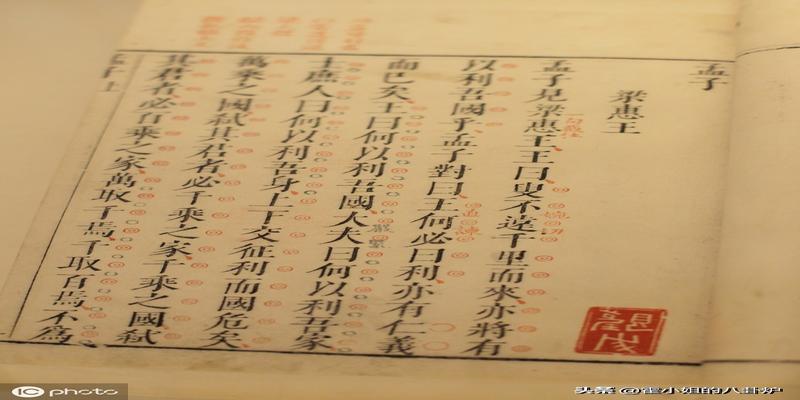 孟子
梁惠王
孟子見梁惠王王曰叟不遠千里而來亦將有
以利吾國乎孟子對曰王何必曰利亦有仁義
而已矣王曰何以利吾國大夫曰何以利吾家
士庶人曰何以利吾身上下交征利而國危矣
萬乘之國弑其君者必千乘之家千乘之國弑
其君者必百乘之家萬取千焉千取百焉不為
孟子上
IC photo
头条 @歪小姐的八卦炉